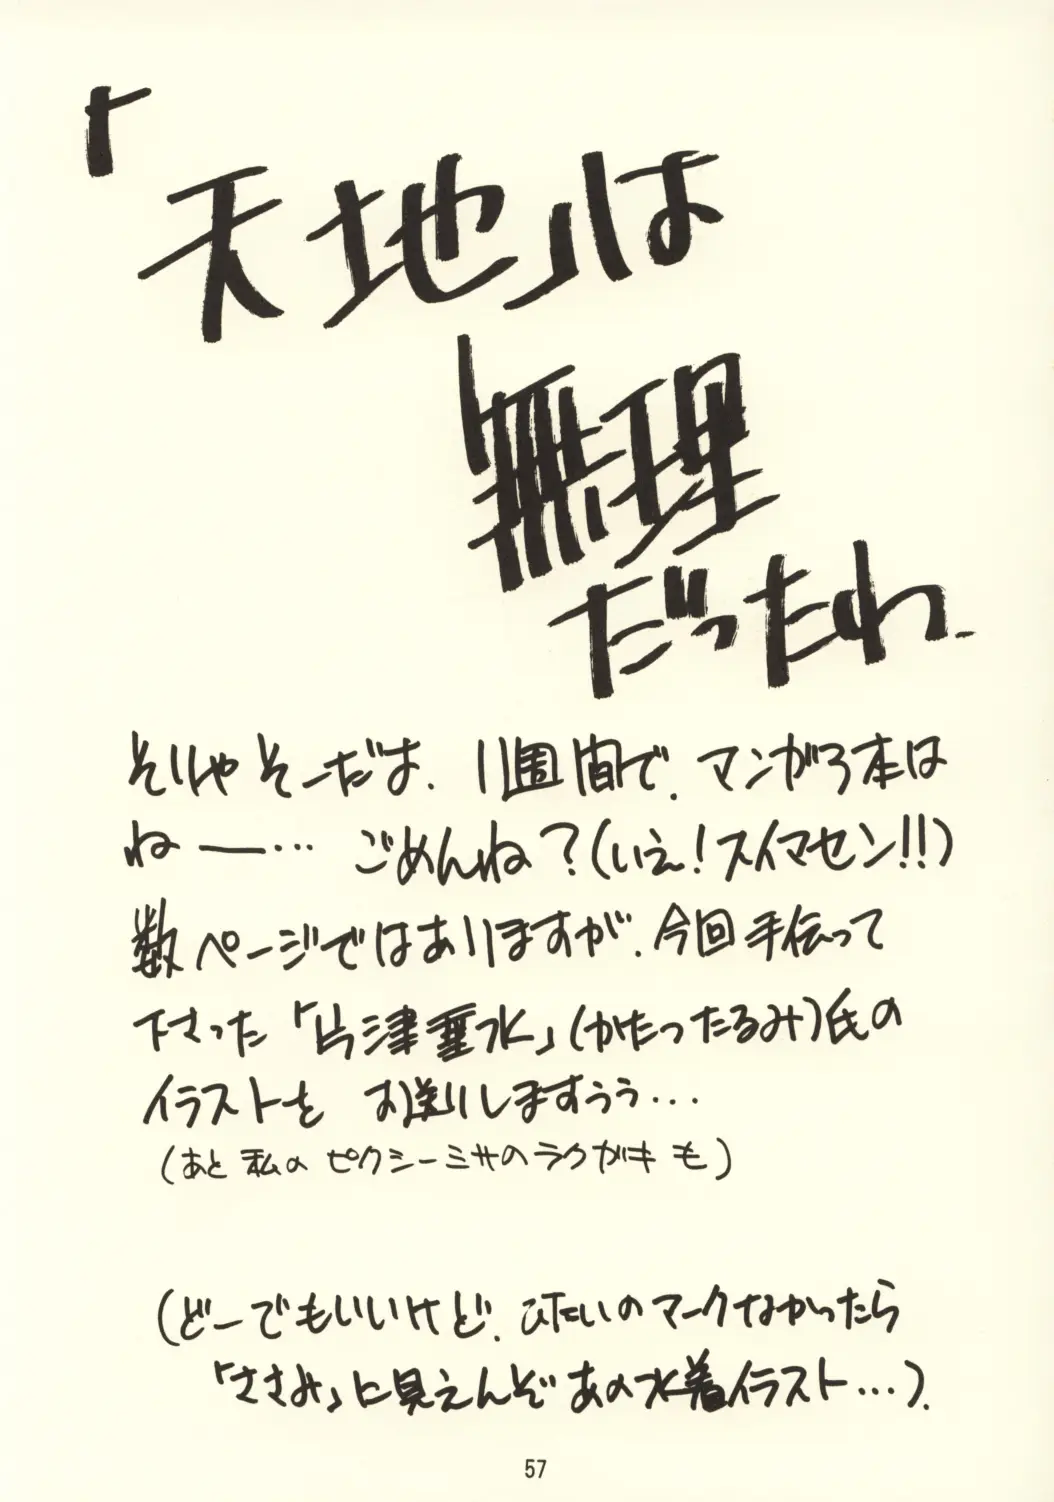 「天地」は
無理
だったわ、
そりゃそーだよ、1週間で、マンガ3本は
ねー…ごめんね?(いえ!スイマセン!!)
数ページではありますが、今回手伝って
下さった「片津垂水」(かたつたるみ)氏の
イラストを お送りしますぅぅ…
(あと私の ピクシーミサのラクガキも)
(どーでもいいけど、ひたいのマークなかったら
「ささみ」に見えんぞあの水着イラスト…).
57